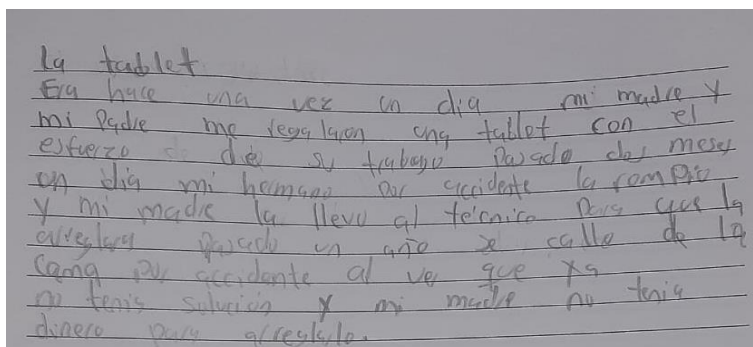 la tablet
Era hace una vez un dia mi madre y
mi Padre me regalaron una tablet con el
esfuerzo de su trabajo Pasado dos meses
un dia mi hermano Por accidente la rompio
y mi madre la llevo al técnico Para que la
arreglara Pasado un año se callo de la
cama por accidente al ver que ya
no tenia solución y mi madre no tenia
dinero para arreglarlo.